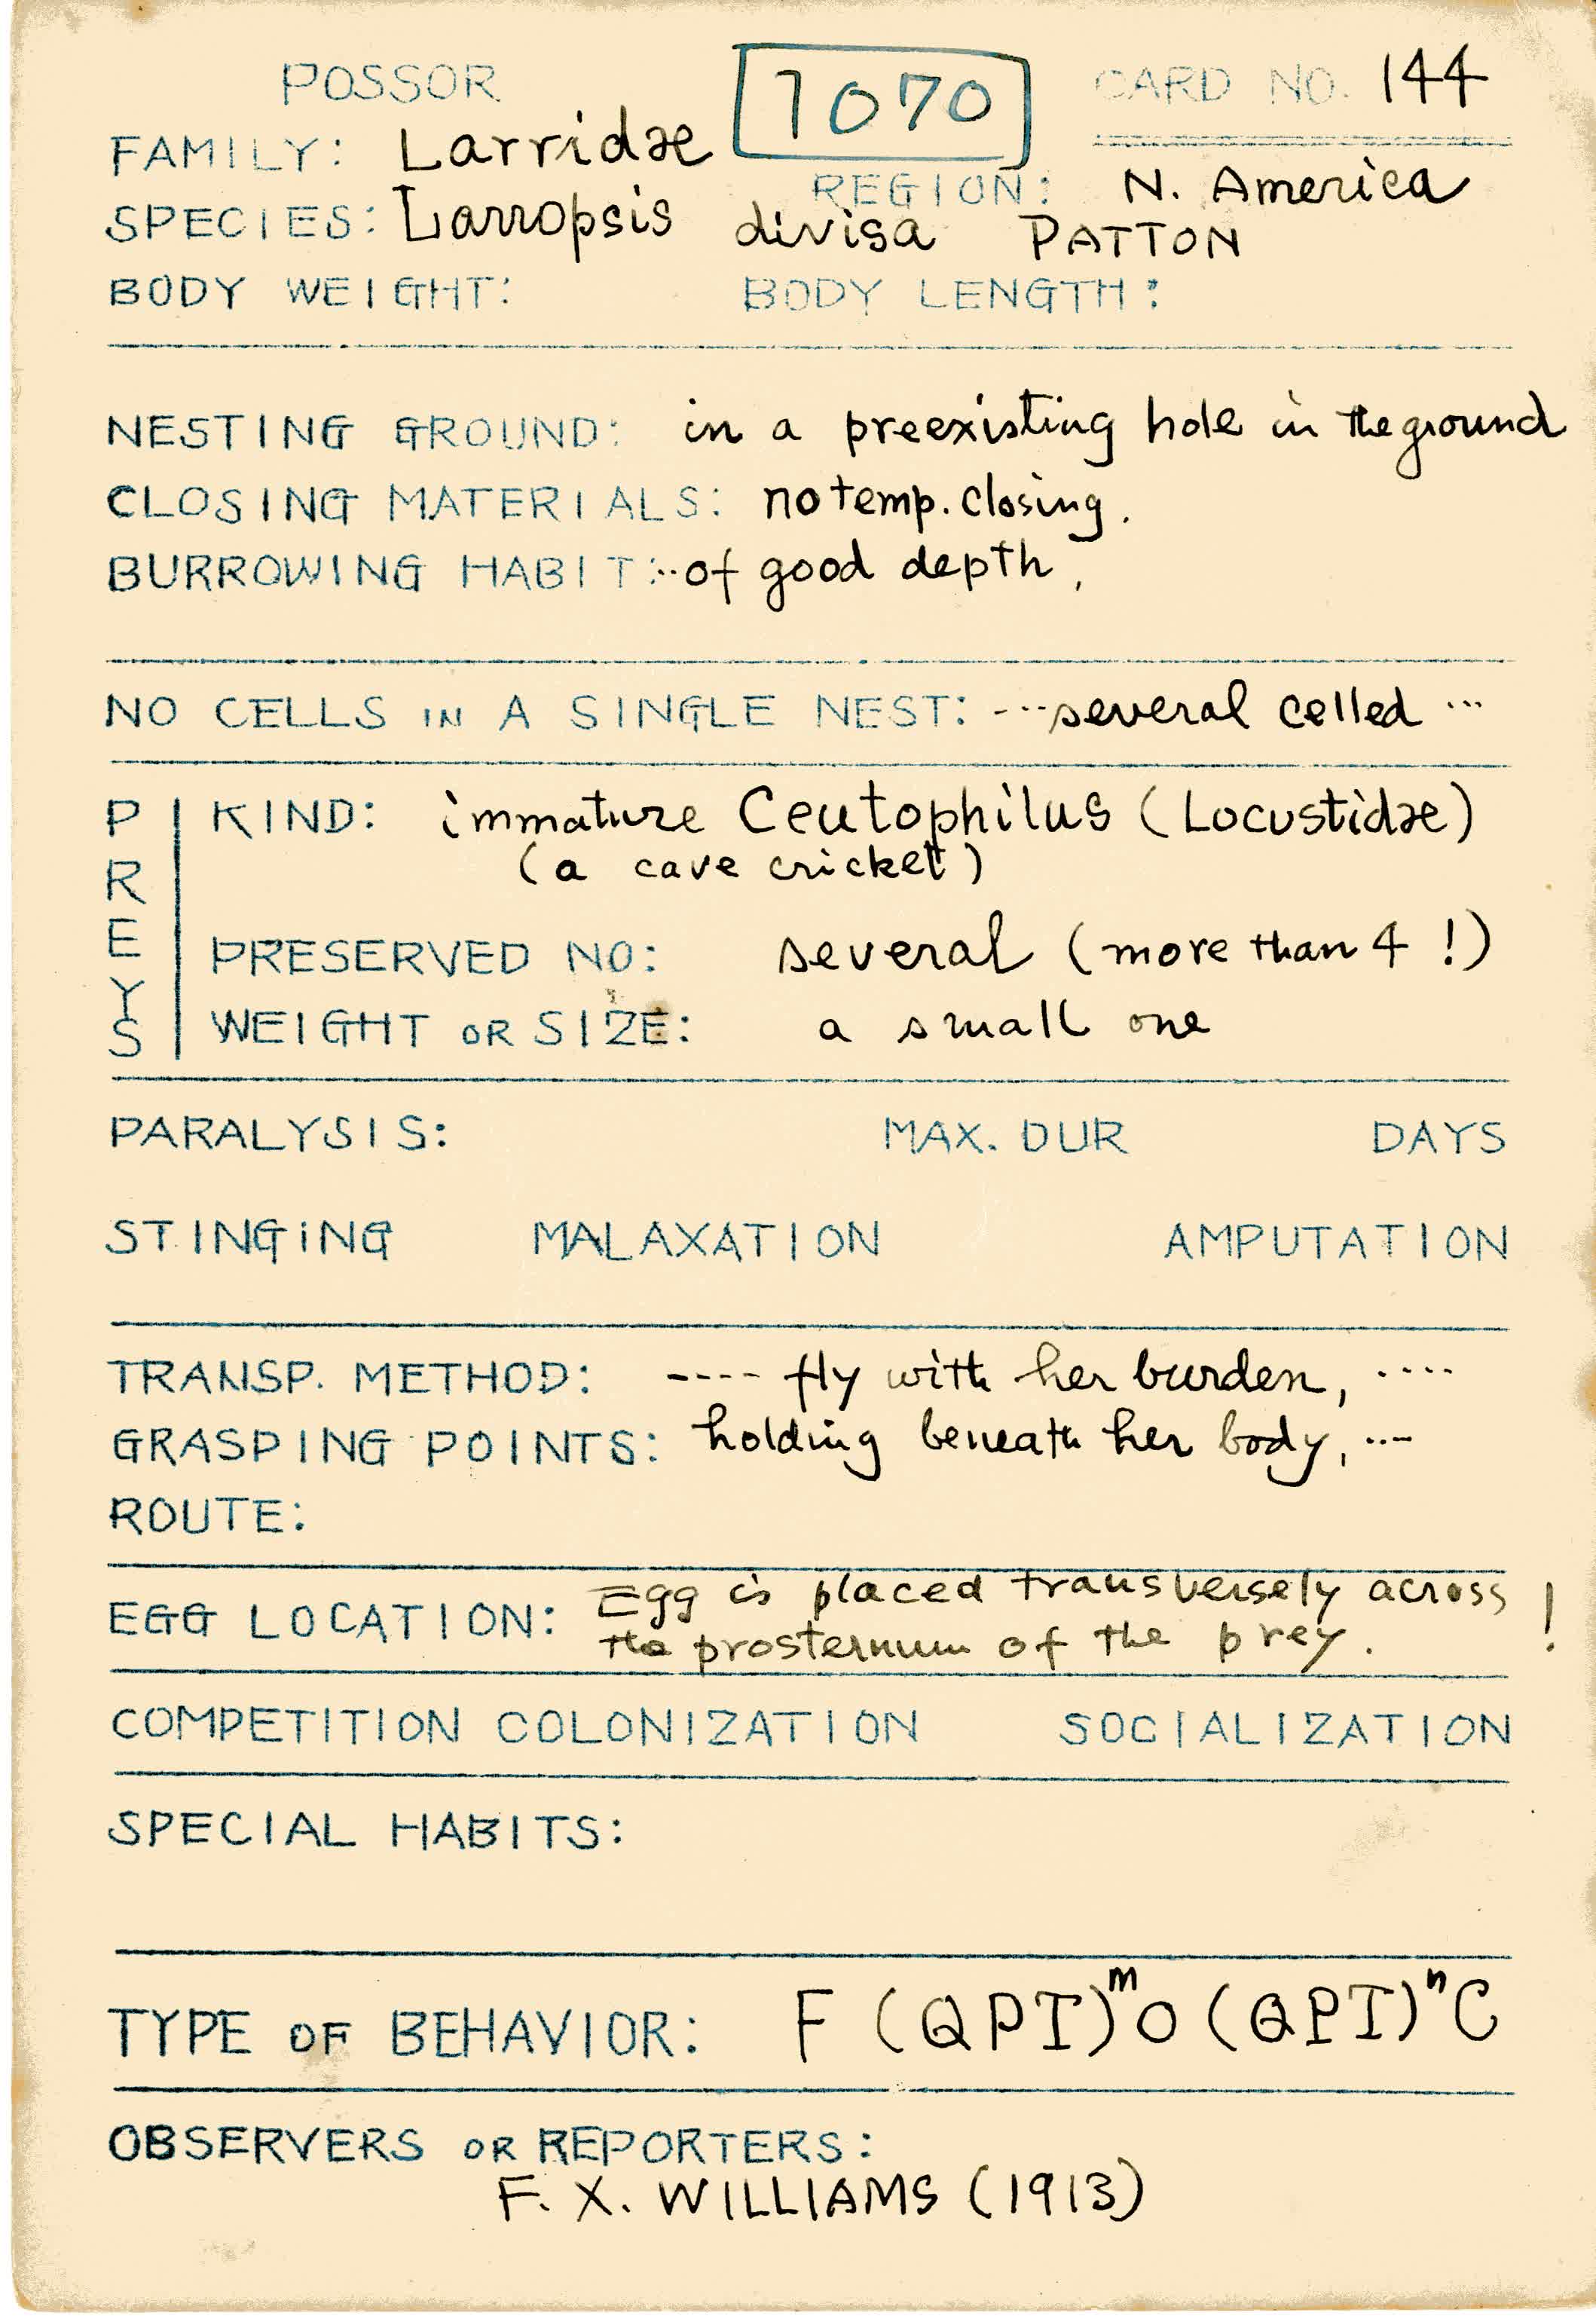 POSSOR 1070 CARD NO. 144
FAMILY: Larridæ
REGION: N. America
SPECIES: Larropsis divisa PATTON
BODY WEIGHT: BODY LENGTH:
NESTING GROUND: in a preexisting hole in the ground
CLOSING MATERIALS: no temp. closing.
BURROWING HABIT: ..of good depth,
NO CELLS IN A SINGLE NEST: ---several celled ...
PREYS
KIND: immature Ceutophilus (Locustidæ)
(a cave cricket)
PRESERVED NO: several (more than 4 !)
WEIGHT OR SIZE: a small one
PARALYSIS: MAX. DUR DAYS
STINGING MALAXATION AMPUTATION
TRANSP. METHOD: ---- fly with her burden, ....
GRASPING POINTS: holding beneath her body, ...
ROUTE:
EGG LOCATION: Egg is placed transversely across
the prosternum of the prey. !
COMPETITION COLONIZATION SOCIALIZATION
SPECIAL HABITS:
TYPE OF BEHAVIOR: F (QPT)ᵐO (QPT)ⁿC
OBSERVERS OR REPORTERS:
F. X. WILLIAMS (1913)